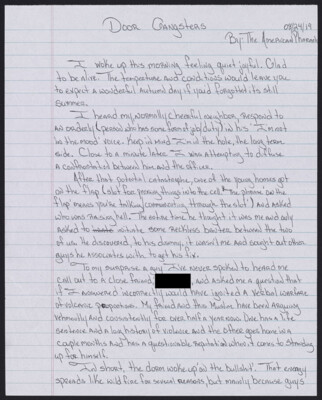 Door Gangsters
09/24/19
By: The American
I woke up this morning feeling quiet joyful. Glad
to be alive. The temperature and conditions would leave you
to expect a wonderful Autumn day if you'd forgot it's still
summer.
I heard my normally cheerful neighbor, respond to
an orderly (person who has some form of job/duty) in his I'm not
in the mood voice. Keep in mind I'm in the hole, the long term
side. Close to a minute later I was attempting to diffuse
a confrontation between him and the officer.
After that potential catastrophe, one of the young homies got
on the flap (slot for passing things into the cell. The phrase on the
flap means you're talking/communicating through the slot) and asked
who was raising hell. The entire time he thought it was me and only
asked to initiate some reckless banter behind the two
of us. He discovered, to his dismay, it wasn't me and sought out other
guys he associates with to get his fix.
To my surprise a guy I've never spoked to heard me
call out to a close friend, and asked me a question that
if I answered incorrectly would have ignited a verbal warfare
of volcanic proportion. My friend and this Muslim have been arguing
vehemently and consistently for over half a year now. One has a life
sentence and a long history of violence and the other goes home in a
couple months and has a questionable reputation when it comes to standing
up for himself.
In short, the dorm woke up on the bullshit. That energy
spreads like wild fire for several reasons, but mainly because guys